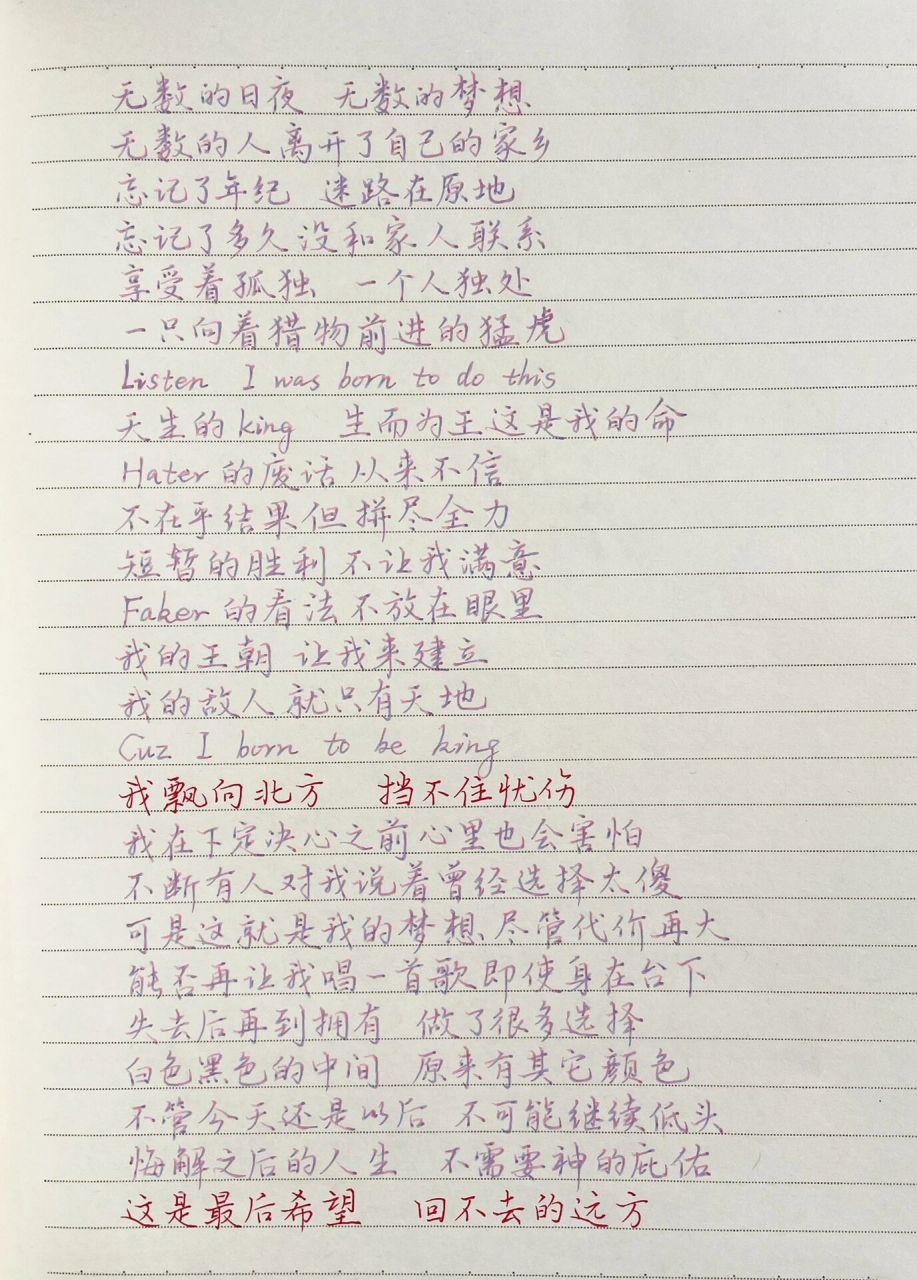 无数的日夜 无数的梦想
无数的人离开了自己的家乡
忘记了年纪 迷路在原地
忘记了多久没和家人联系
享受着孤独 一个人独处
一只向着猎物前进的猛虎
Listen I was born to do this
天生的king 生而为王这是我的命
Hater的废话从来不信
不在乎结果但拼尽全力
短暂的胜利不让我满意
Faker的看法不放在眼里
我的王朝 让我来建立
我的敌人就只有天地
Cuz I born to be king
我飘向北方 挡不住忧伤
我在下定决心之前心里也会害怕
不断有人对我说着曾经选择太傻
可是这就是我的梦想、尽管代价再大
能否再让我唱一首歌即使身在台下
失去后再到拥有 做了很多选择
白色黑色的中间 原来有其它颜色
不管今天还是以后 不可能继续低头
悔解之后的人生 不需要神的庇佑
这是最后希望 回不去的远方